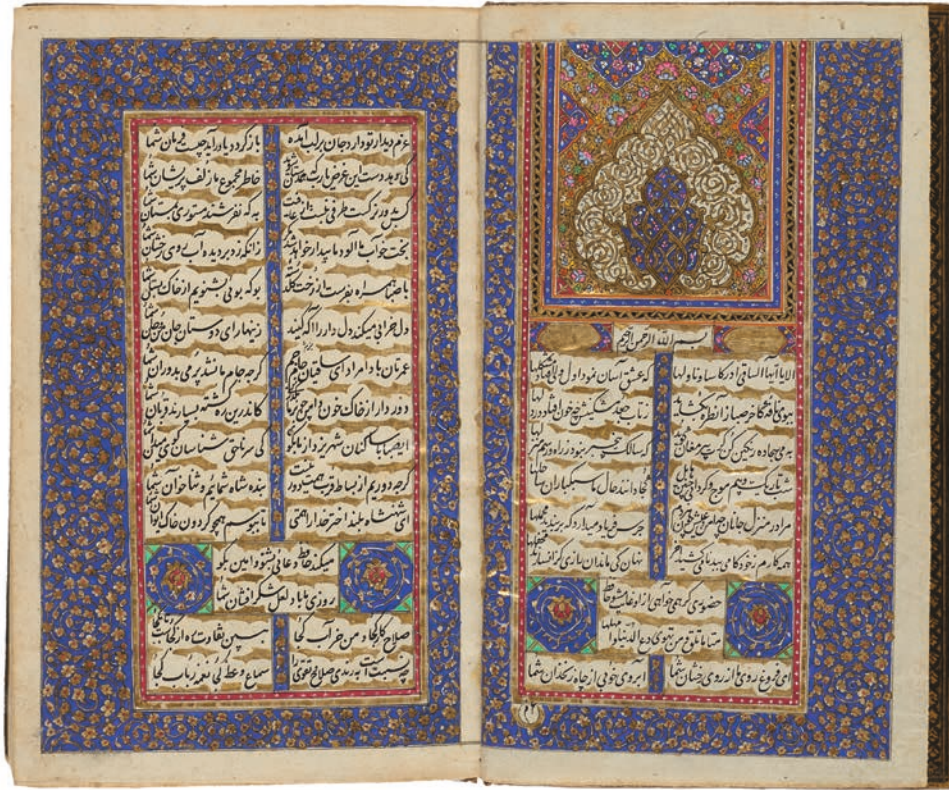 بسم الله الرحمن الرحیم
الا یا ایها الساقی ادر کاسا و ناولها که عشق آسان نمود اول ولی افتاد مشکلها
ببوی نافه کاخر صبا زان طره بکشاید ز تاب جعد مشکینش چه خون افتاد در دلها
به می سجاده رنگین کن گرت پیر مغان گوید که سالک بی خبر نبود ز راه و رسم منزلها
شب تاریک و بیم موج و گردابی چنین هایل کجا دانند حال ما سبکباران ساحلها
مرا در منزل جانان چه امن عیش چون هر دم جرس فریاد میدارد که بربندید محملها
همه کارم ز خود کامی ببدنامی کشید آخر نهان کی ماند آن رازی کزان سازند محفلها
حضوری گر همی خواهی ازو غایب مشو حافظ
متی ما تلق من تهوی دع الدنیا و اهملها
ای فروغ روی ماه از روی رخشان شما آبروی خوبی از چاه زنخدان شما
عزم دیدار تو دارد جان بر لب آمده باز گردد یا درآید چیست فرمان شما
کی دهد دست این غرض یارب که همدستان شوند خاطر مجموع ما زلف پریشان شما
کس بدور نرگست طرفی نبست از عافیت به که نفرشند مستوری بمستان شما
بخت خواب آلود ما بیدار خواهد شد مگر زانکه زد بر دیده آب روی رخشان شما
با صبا همراه بفرست از رخت گلدسته بو که بوئی بشنویم از خاک بستان شما
دل خرابی میکند دلدار را آگه کنید زینهار ای دوستان جان من و جان شما
عمرتان باد و مراد ای ساقیان بزم جم گرچه جام ما نشد پر می بدوران شما
دور دار از خاک و خون دامن چو بر ما بگذری کاندرین ره کشته بسیارند قربان شما
ای صبا با ساکنان شهر یزد از ما بگو کی سر ناحق شناسان گوی میدان شما
گرچه دوریم از بساط قرب همت دور نیست بنده شاه شمائیم و ثنا خوان شما
ای شهنشاه بلند اختر خدا را همتی تا ببوسم همچو گردون خاک ایوان شما
میکند حافظ دعائی بشنو و آمین بگو
روزی ما باد لعل شکر افشان شما
صلاح کار کجا و من خراب کجا ببین تفاوت ره از کجاست تا بکجا
چه نسبت است به رندی صلاح و تقوی را سماع وعظ کجا نغمه رباب کجا